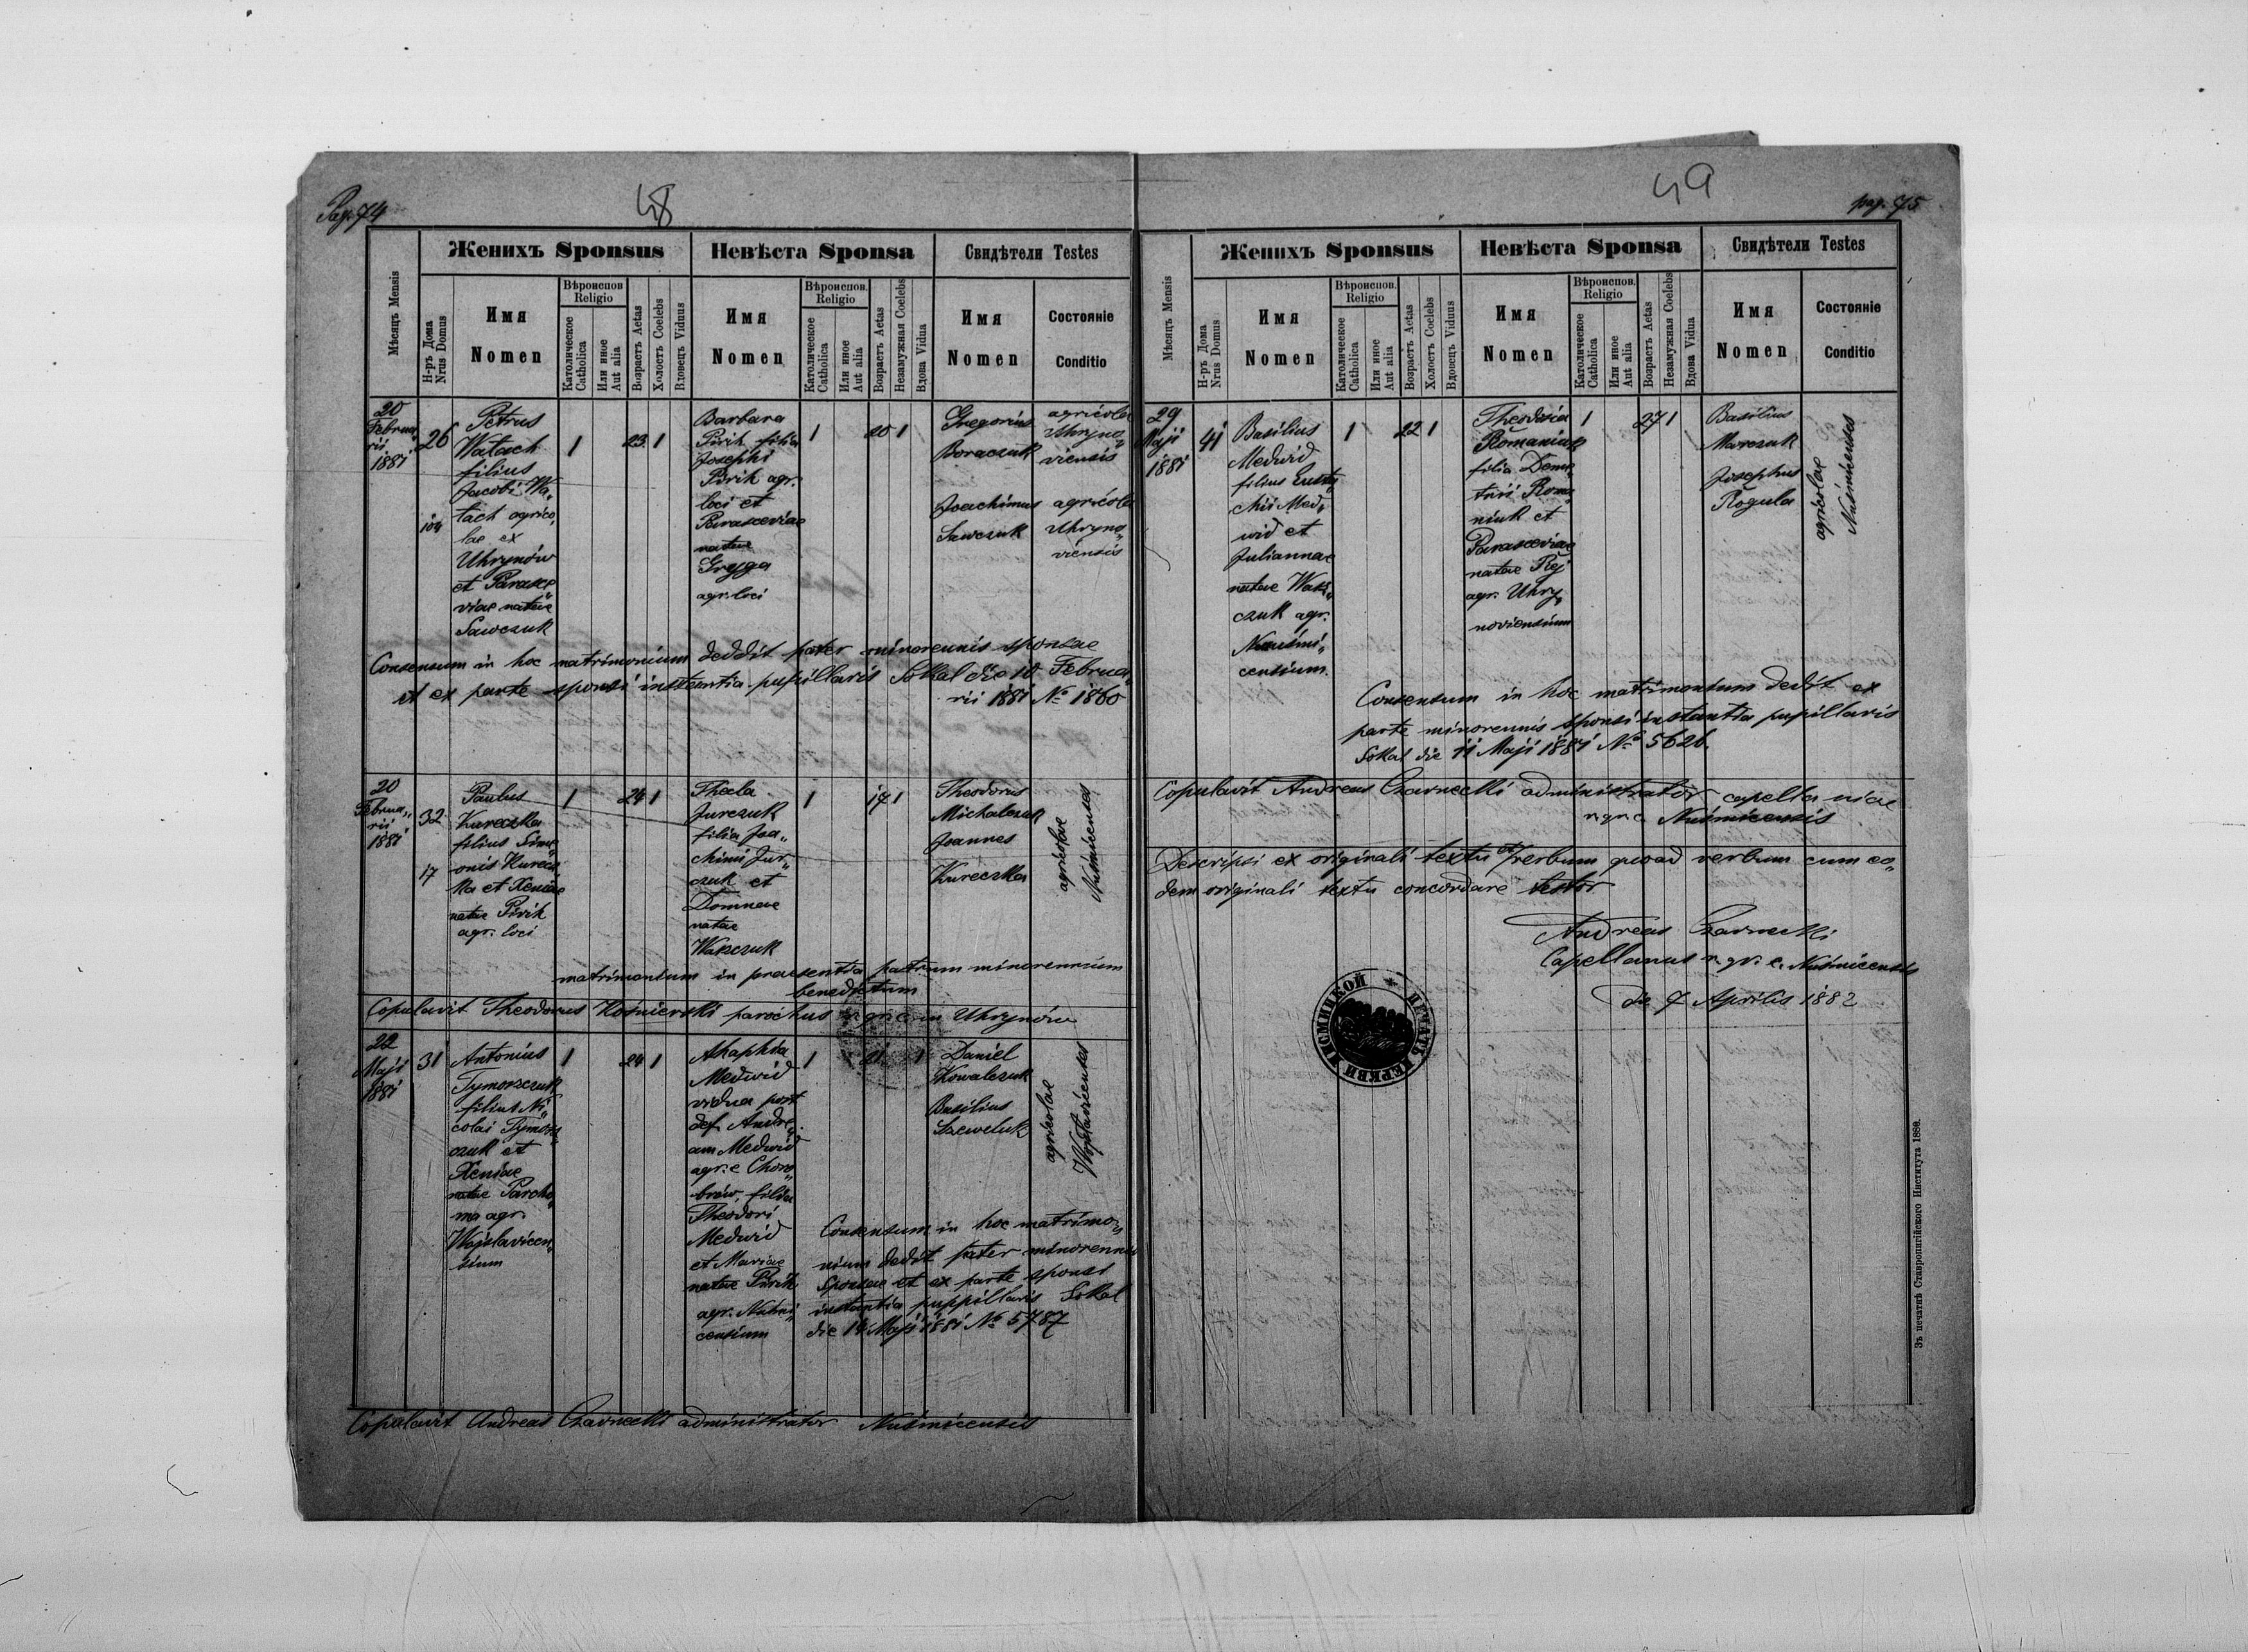 Pag. 74
48
Женихъ Sponsus
Невѣста Sponsa
Свидѣтели Testes
Мѣсяцъ Mensis
Н-ръ Дома
Nrus Domus
Имя
Nomen
Вѣроиспов
Religio
Католическое
Catholica
Или иное
Aut alia
Возрастъ Aetas
Холостъ Coelebs
Вдовецъ Viduus
Имя
Nomen
Вѣроиспов.
Religio
Католическое
Catholica
Или иное
Aut alia
Возрастъ Aetas
Незамужная Coelebs
Вдова Vidua
Имя
Nomen
Состояніе
Conditio
20
Februa„
rii
1881
26
104
Petrus
Watach
filius
Jacobi Wa„
tach agrico„
lae ex
Uhrynów
et Parasce„
viae natae
Sawczuk
1
23
1
Barbara
Pivik filia
Josephi
Pivik agr.
loci et
Parasceviae
natae
Gregga
agr. loci
1
20
1
Gregorius
Boraczuk
Joachimus
Sawczuk
agricola
Uhryno„
viensis
agricola
Uhryno„
viensis
Consensum in hoc matrimonium deddit pater minorennis sponsae
et ex parte sponsi instantia pupillaris Sokal die 10 Februa„
rii 1881 No 1860
20
Februa„
rii
1881
32
17
Paulus
Kureczka
filius Sime„
onis Kurecz„
ka et Xeniae
natae Pivik
agr. loci
1
24
1
Thecla
Jurczuk
filia Joa„
chimi Jur„
czuk et
Domnae
natae
Waszczuk
1
17
1
Theodorus
Michalczuk
Joannes
Kureczka
agricolae
Nuśmicenses
matrimonium in praesentia patrum minorennium
benedictum
Copulavit Theodorus Kośnierski parochus r. gr. c. in Uhrynów
22
Maji
1881
31
Antonius
Tymoszczuk
filius Ni„
colai Tymosz„
czuk et
Xeniae
natae Parcho„
ma agr.
Wojslavicen„
sium
1
24
1
Ahaphia
Medwid
vidua post
def. Andre„
am Medwid
agr. e Choro„
brów, filia
Theodori
Medwid
et Mariae
natae Pivik
agr. Nuśmi„
censium
1
21
1
Daniel
Kowalczuk
Basilius
Szewczuk
agricolae
Wojslavicenses
Consensum in hoc matrimo„
nium dedit pater minorennis
sponsae et ex parte sponsi
instantia puppillaris Sokal
die 14 Maji 1881 No 5787
Copulavit Andreas Czarnecki administrator Nuśmicensis
49
pag. 75
Женихъ Sponsus
Невѣста Sponsa
Свидѣтели Testes
Мѣсяцъ Mensis
Н-ръ Дома
Nrus Domus
Имя
Nomen
Вѣроиспов.
Religio
Католическое
Catholica
Или иное
Aut alia
Возрастъ Aetas
Холостъ Coelebs
Вдовецъ Viduus
Имя
Nomen
Вѣроиспов.
Religio
Католическое
Catholica
Или иное
Aut alia
Возрастъ Aetas
Незамужная Coelebs
Вдова Vidua
Имя
Nomen
Состояніе
Conditio
29
Maji
1881
41
Basilius
Medwid
filius Eusta„
chii Med„
wid et
Juliannae
natae Wasz„
czuk agr.
Nuśmi„
censium.
1
22
1
Theodosia
Romaniuk
filia Deme„
trii Roma„
niuk et
Parasceviae
natae Rej
agr. Uhry„
noviensium
1
27
1
Basilius
Marczuk
Josephus
Rogula
agricolae
Nuśmicenses
Consensum in hoc matrimonium dedit ex
parte minorennis sponsi instantia pupillaris
Sokal die 11 Maji 1881 No 5626.
Copulavit Andreas Czarnecki administrator capellaniae
r. gr. c. Nuśmicensis
Descripsi ex originali textu et verbum quoad verbum cum eo„
dem originali textu concordare testor
Andreas Czarnecki
Capellanus r. gr. c. Nuśmicensis
die 7 Aprilis 1882
ПЕЧАТЬ ЦЕРКВИ НИСМИЦКОЙ
Зъ печатнѣ Ставропигійского Института 1880.